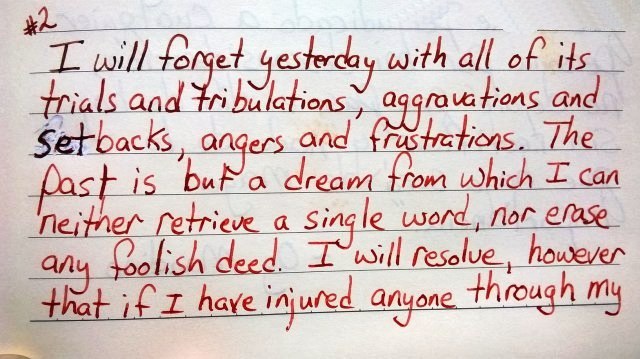 #2
I will forget yesterday with all of its
trials and tribulations, aggravations and
setbacks, angers and frustrations. The
past is but a dream from which I can
neither retrieve a single word, nor erase
any foolish deed. I will resolve, however
that if I have injured anyone through my